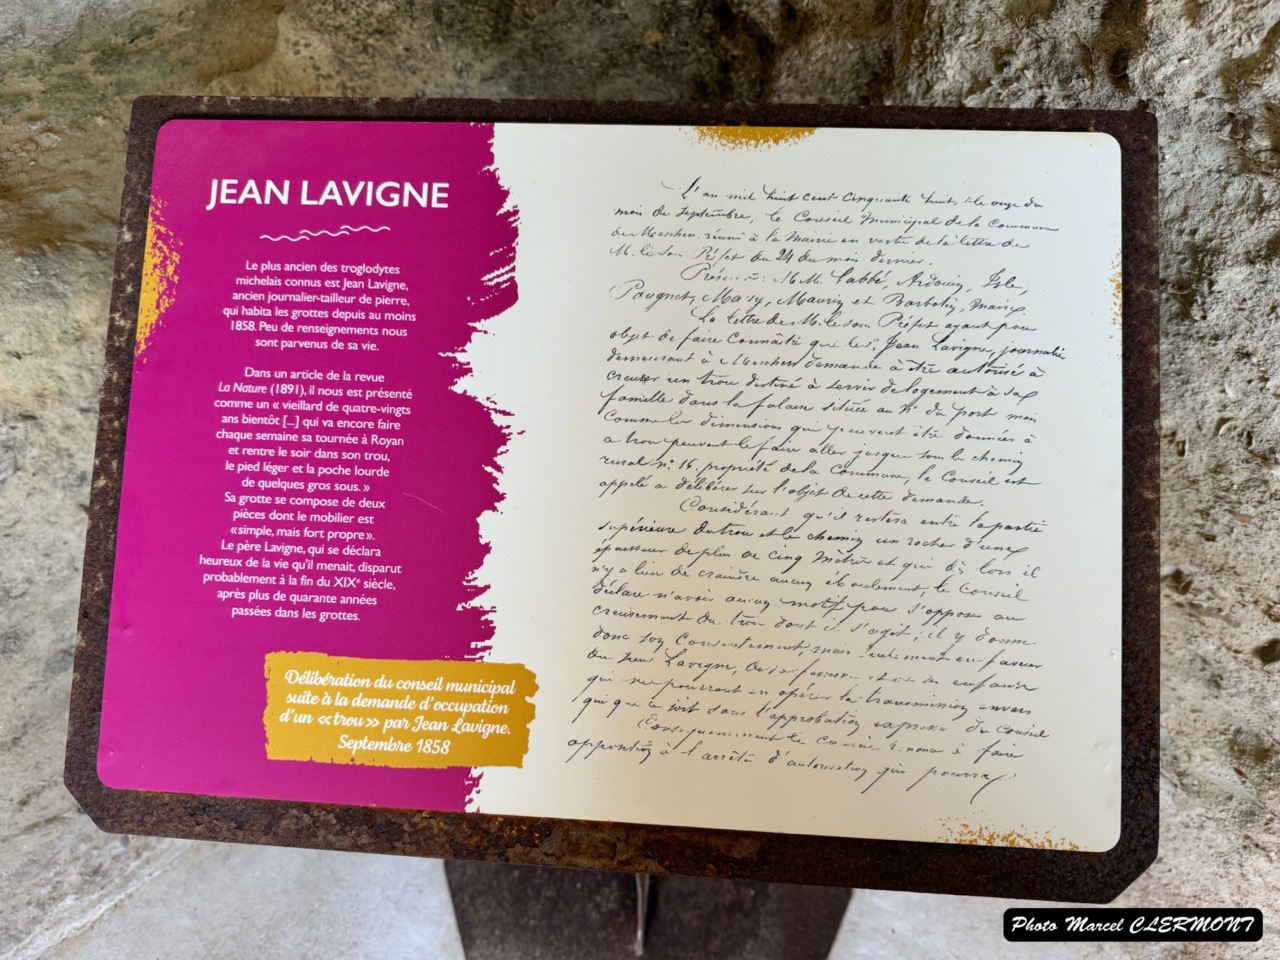 JEAN LAVIGNE
Le plus ancien des troglodytes
michelais connus est Jean Lavigne,
ancien journalier-tailleur de pierre,
qui habita les grottes depuis au moins
1858. Peu de renseignements nous
sont parvenus de sa vie.
Dans un article de la revue
La Nature (1891), il nous est présenté
comme un « vieillard de quatre-vingts
ans bientôt [...] qui va encore faire
chaque semaine sa tournée à Royan
et rentre le soir dans son trou,
le pied léger et la poche lourde
de quelques gros sous. »
Sa grotte se compose de deux
pièces dont le mobilier est
« simple, mais fort propre ».
Le père Lavigne, qui se déclara
heureux de la vie qu'il menait, disparut
probablement à la fin du XIXe siècle,
après plus de quarante années
passées dans les grottes.
Délibération du conseil municipal
suite à la demande d'occupation
d'un « trou » par Jean Lavigne.
Septembre 1858
L'an mil huit cent cinquante huit, le onze du
mois de septembre, le Conseil Municipal de la Commune
de Meschers, réuni à la Mairie en vertu de la lettre de
M. le Préfet du 24 du mois dernier.
MM. Labbé, Ardouin, Isle,
Maurin et Barbotin, maire
La lettre de M. le Préfet ayant pour
objet de faire connaître que le Sr. Jean Lavigne, journalier
demeurant à Meschers demande à être autorisé à
creuser un trou destiné à servir de logement à sa
famille dans la falaise située au Nd du port mais
comme les dimensions qui peuvent être données à
ce trou peuvent le faire aller jusque sous le chemin
rural no. 16, propriété de la Commune, le Conseil est
appelé à délibérer sur l'objet de cette demande.
Considérant qu'il restera entre la partie
supérieure du trou et le chemin un rocher d'une
épaisseur de plus de cinq mètres et que dès lors il
n'y a lieu de craindre aucun éboulement, le Conseil
déclare n'avoir aucun motif pour s'opposer au
creusement du trou dont il s'agit; il y donne
donc son Consentement, mais seulement en faveur
du Sieur Lavigne, de sa femme et de ses enfants
qui ne pourront en opérer la transmission envers
qui que ce soit sans l'approbation expresse du Conseil
Conséquemment le à faire
opposition à l'arrêté d'autorisation que pourra
Photo Marcel CLERMONT